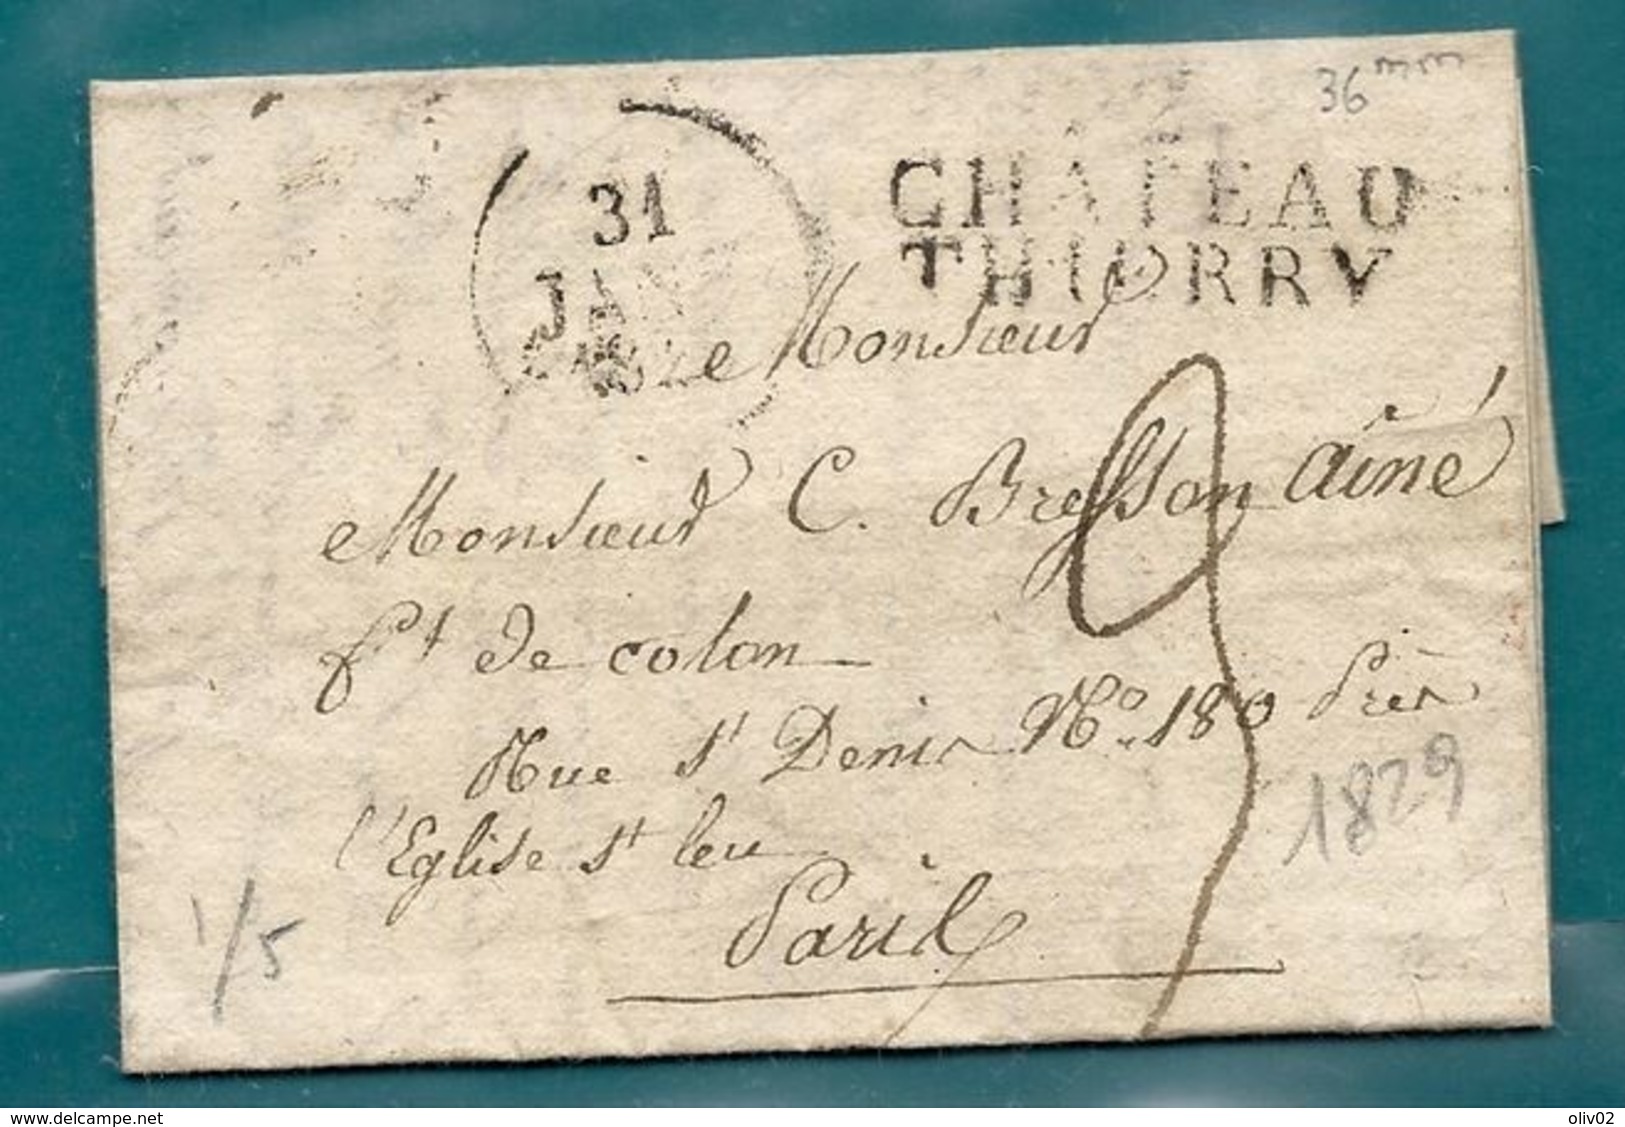 36 mm
CHATEAU
THIERRY
31
JANV
Monsieur
Monsieur C. Bresson aîné
ft de coton
Rue st Denis No. 180 Près
l'Eglise st leu
Paris
1829
1/5
delcampe.net
oliv02